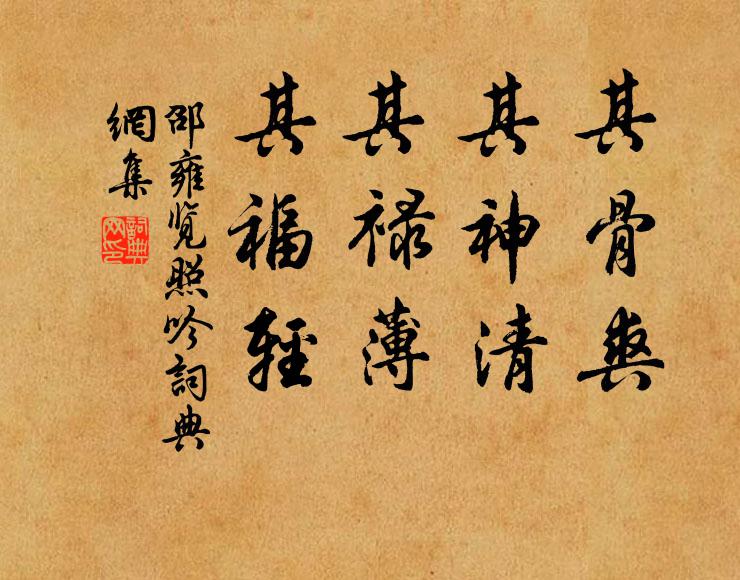 其骨爽
其神清
其禄薄
其福輕
邵雍览照吟詞典
網集
詞典
网印